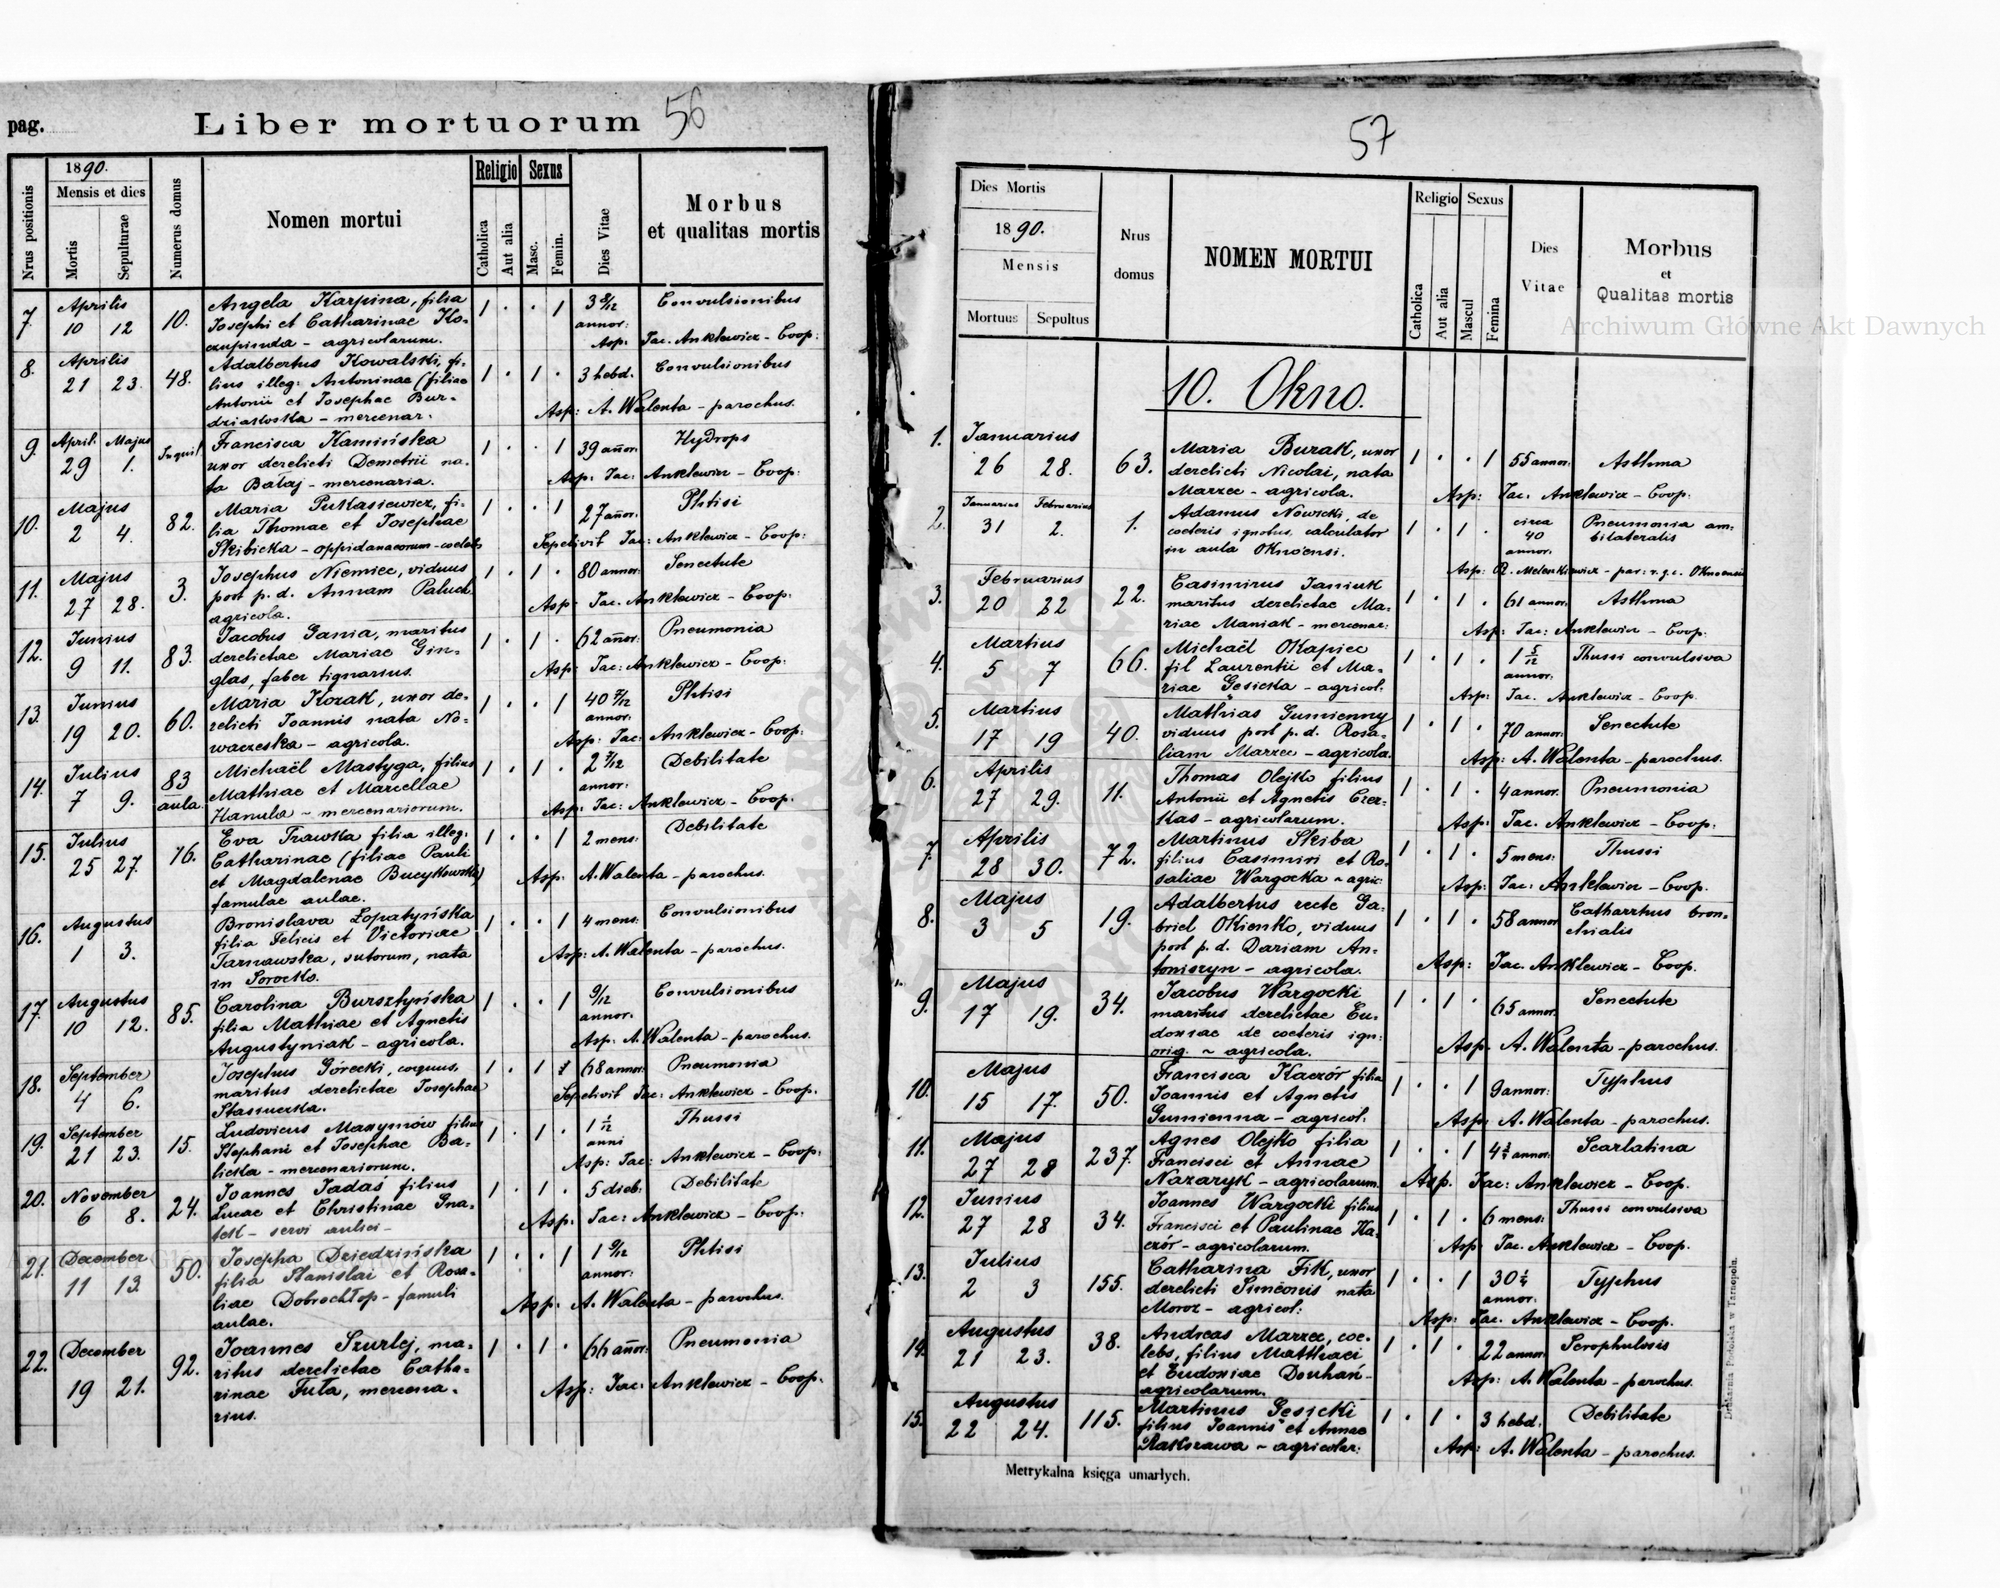 pag.
Liber mortuorum 56
Nrus positionis
1890.
Mensis et dies
Mortis
Sepulturae
Numerus domus
Nomen mortui
Religio
Catholica
Aut alia
Sexus
Masc.
Femin.
Dies Vitae
Morbus
et qualitas mortis
7. Aprilis 10 12 10. Angela Karpina, filia 1 . . 1 3 8/12 annor: Convulsionibus
Josephi et Catharinae Ko-
- agricolarum. Asp: Jac. Anklewicz - Coop:
8. Aprilis 21 23. 48. Adalbertus Kowalski, fi- 1 . 1 . 3 hebd. Convulsionibus
lius illeg: Antoninae (filiae
Antonii et Josephae Bur-
- mercenar. Asp: A. Walenta - parochus.
9. April. Majus 29 1. Inquil. Francisca Kamińska 1 . . 1 39 annor. Hydrops
uxor derelicti Demetrii na-
ta Bataj - mercenaria. Asp: Jac: Anklewicz - Coop:
10. Majus 2 4. 82. Maria Pukasiewicz, fi- 1 . . 1 27 annor. Phtisi
lia Thomae et Josephae
Skibicka - oppidanaeorum - coelebs Sepelivit Jac: Anklewicz - Coop:
11. Majus 27 28. 3. Josephus Niemiec, viduus 1 . 1 . 80 annor: Senectute
post p. d. Annam Paluch
agricola. Asp: Jac. Anklewicz - Coop:
12. Junius 9 11. 83. Jacobus Gania, maritus 1 . 1 . 62 annor: Pneumonia
derelictae Mariae Gin-
glas, faber lignarius. Asp: Jac: Anklewicz - Coop:
13. Junius 19 20. 60. Maria Kozak, uxor de- 1 . . 1 40 7/12 annor: Phtisi
relicti Joannis nata No-
waczeska - agricola. Asp: Jac: Anklewicz - Coop:
14. Julius 7 9. 83 aula. Michaël Mastyga, filius 1 . 1 . 2 7/12 annor: Debilitate
Mathiae et Marcellae
Hanula - mercenariorum. Asp: Jac: Anklewicz - Coop:
15. Julius 25 27. 76. Eva Trawka filia illeg: 1 . . 1 2 mens: Debilitate
Catharinae (filiae Pauli
et Magdalenae Bucykowska)
famulae aulae. Asp: A. Walenta - parochus.
16. Augustus 1 3. Bronislava Lopatyńska 1 . . 1 4 mens: Convulsionibus
filia Felicis et Victoriae
Tarnawska, sutorum, nata
in Sorocko. Asp: A. Walenta - parochus.
17. Augustus 10 12. 85. Carolina Bursztyńska 1 . . 1 9/12 annor: Convulsionibus
filia Mathiae et Agnetis
Augustyniak - agricola. Asp: A. Walenta - parochus.
18. September 4 6. Josephus Górecki, coquus, 1 . 1 68 annor: Pneumonia
maritus derelictae Josephae
Sepelivit Jac: Anklewicz - Coop:
19. September 21 23. 15. Ludovicus Maxymów filius 1 . 1 . 1 1/12 anni Thussi
Stephani et Josephae Ba-
licka - mercenariorum. Asp: Jac: Anklewicz - Coop:
20. November 6 8. 24. Joannes Jadaś filius 1 . 1 . 5 dieb: Debilitate
Lucae et Christinae Gna-
tek - servi aulici - Asp: Jac: Anklewicz - Coop:
21. December 11 13. 50. Josepha Dziedzińska 1 . . 1 1 9/12 annor: Phtisi
filia Stanislai et Rosa-
liae Dobrochłop - famuli
aulae. Asp: A. Walenta - parochus.
22. December 19 21. 92. Joannes Szurlej, ma- 1 . 1 . 66 annor: Pneumonia
ritus derelictae Catha-
rinae Futa, mercena-
rius. Asp: Jac: Anklewicz - Coop.
57
Dies Mortis
1890.
Mensis
Mortuus Sepultus
Nrus
domus
NOMEN MORTUI
Religio
Catholica
Aut alia
Sexus
Mascul
Femina
Dies
Vitae
Morbus
et
Qualitas mortis
Archiwum Główne Akt Dawnych
10. Okno.
1. Januarius 26 28. 63. Maria Burak, uxor 1 . . 1 55 annor: Asthma
derelicti Nicolai, nata
Marzec - agricola. Asp: Jac: Anklewicz - Coop:
2. Januarius Februarius 31 2. 1. Adamus Nowicki, de 1 . 1 . circa 40 annor. Pneumonia am-
coeteris ignotus, calculator bilateralis
in aula Oknoensi. Asp: R. Melenkiewicz - par: r. g. c. Oknoensis
3. Februarius 20 22 22. Casimirus Janiuk 1 . 1 . 61 annor: Asthma
maritus derelictae Ma-
riae Maniak - mercenar: Asp: Jac: Anklewicz - Coop:
4. Martius 5 7 66. Michaël Okapiec 1 . 1 . 1 5/12 annor: Thussi convulsiva
fil Laurentii et Ma-
riae Gęsicka - agricol: Asp: Jac. Anklewicz - Coop.
5. Martius 17 19 40. Mathias Gumienny 1 . 1 . 70 annor: Senectute
viduus post p. d. Rosa-
liam Marzec - agricola. Asp: A. Walenta - parochus.
6. Aprilis 27 29. 11. Thomas Olejko filius 1 . 1 . 4 annor. Pneumonia
Antonii et Agnetis Czer-
kas - agricolarum. Asp: Jac. Anklewicz - Coop:
7. Aprilis 28 30. 72. Martinus Skiba 1 . 1 . 5 mens: Thussi
filius Casimiri et Ro-
saliae Wargocka - agric: Asp: Jac: Anklewicz - Coop.
8. Majus 3 5 19. Adalbertus recte Ga- 1 . 1 . 58 annor Catharrhus bron-
briel Okienko, viduus chialis
post p. d. Dariam An-
toniszyn - agricola. Asp: Jac. Anklewicz - Coop.
9. Majus 17 19. 34. Jacobus Wargocki 1 . 1 . 65 annor. Senectute
maritus derelictae Eu-
doxiae de coeteris ign:
orig. - agricola. Asp. A. Walenta - parochus.
10. Majus 15 17. 50. Francisca Kaczór filia 1 . . 1 9 annor: Typhus
Joannis et Agnetis
Gumienna - agricol: Asp: A. Walenta - parochus.
11. Majus 27 28 237. Agnes Olejko filia 1 . . 1 annor: Scarlatina
Francisci et Annae
Nazaryk - agricolarum. Asp. Jac: Anklewicz - Coop.
12. Junius 27 28 34. Joannes Wargocki filius 1 . 1 . 6 mens: Thussi convulsiva
Francisci et Paulinae Ka-
czór - agricolarum. Asp: Jac. Anklewicz - Coop.
13. Julius 2 3 155. Catharina Fik, uxor 1 . . 1 annor. Typhus
derelicti Simeonis nata
Moroz - agricol: Asp: Jac. Anklewicz - Coop.
14. Augustus 21 23. 38. Andreas Marzec, coe- 1 . 1 . 22 annor Scrophulosis
lebs, filius Matthaei
et Eudoxiae Douhań -
agricolarum. Asp: A. Walenta - parochus.
15. Augustus 22 24. 115. Martinus Gęsicki 1 . 1 . 3 hebd. Debilitate
filius Joannis et Annae
Rakszawa - agricolar: Asp: A. Walenta - parochus.
Metrykalna księga umarłych.
Drukarnia Podolska w Tarnopolu.